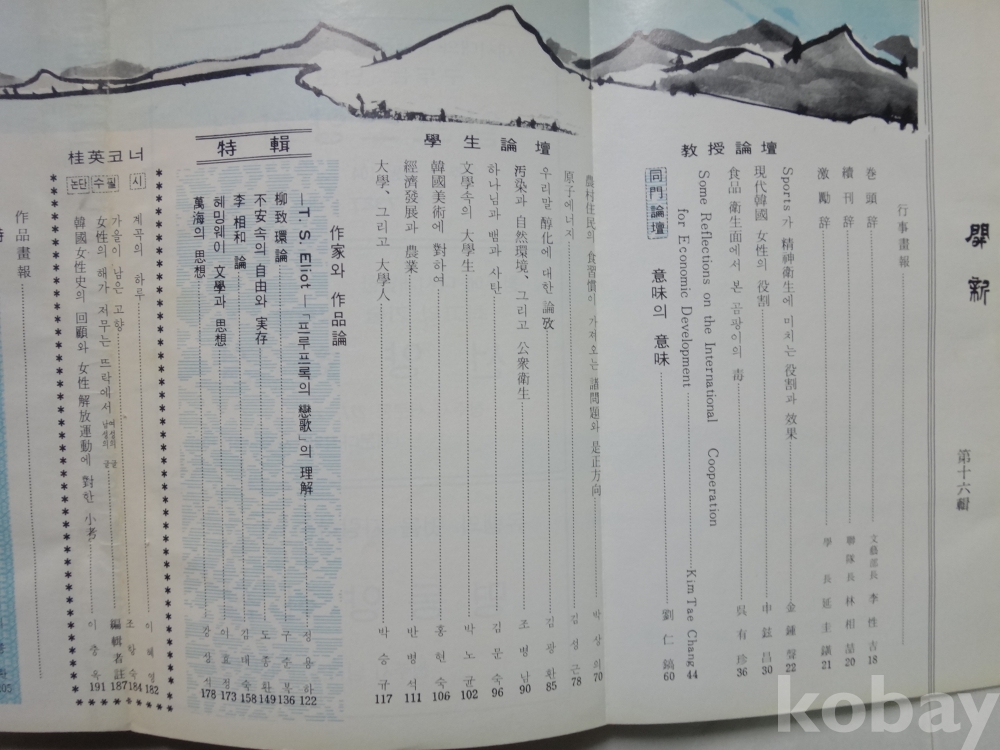 開新
第十六輯
行事畫報
卷頭辞 文藝部長 李性吉 18
續刊辞 聯隊長 林相喆 20
激勵辞 學長 延圭鐄 21
教授論壇
Sports가 精神衛生에 미치는 役割과 效果 金鍾聲 22
現代韓國 女性의 役割 申鉉昌 30
食品 衛生面에서 본 곰팡이의 毒 吳有珍 36
Some Reflections on the International Cooperation
for Economic Development Kim Tae Chang 44
同門論壇
意味의 意味 劉仁鎬 60
學生論壇
農村住民의 食習慣이 가져오는 諸問題와 是正方向 박상의 70
原子에너지 김성근 78
우리말 醇化에 대한 論攷 김광환 85
汚染과 自然環境、그리고 公衆衛生 조병남 90
하나님과 뱀과 사탄 김문숙 96
文學속의 大學生 박노균 102
韓國美術에 對하여 홍현숙 106
經濟發展과 農業 반병석 111
大學、그리고 大學人 박승규 117
特輯
作家와 作品論
—T. S. Eliot—「프루프록의 戀歌」의 理解 정용하 122
柳致環論 구순복 136
不安속의 自由와 実存 도종환 149
李相和 論 김태숙 158
헤밍웨이 文學과 思想 이효정 173
萬海의 思想 강상식 178
桂英코너
시
계곡의 하루 이혜영 182
수필
가을이 남은 고향 조탐숙 184
女性의 해가 저무는 뜨락에서 여성의 글 남성의 글 編輯者註 187
논단
韓國女性史의 回顧와 女性解放運動에 對한 小考 이중옥 191
作品畫報
詩
205
kobay